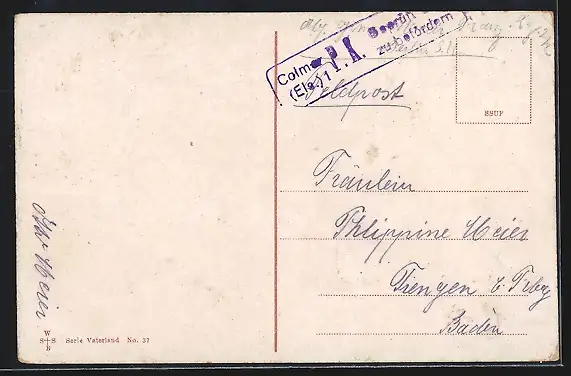 Colmar P.K. Geprüft
(Els.) 1 zu befördern
Feldpost
SSUF
Fräulein
Philippine Meier
Triengen b. Frbg
Baden
Otto Meier
W
S+S
B
Serie Vaterland No. 37